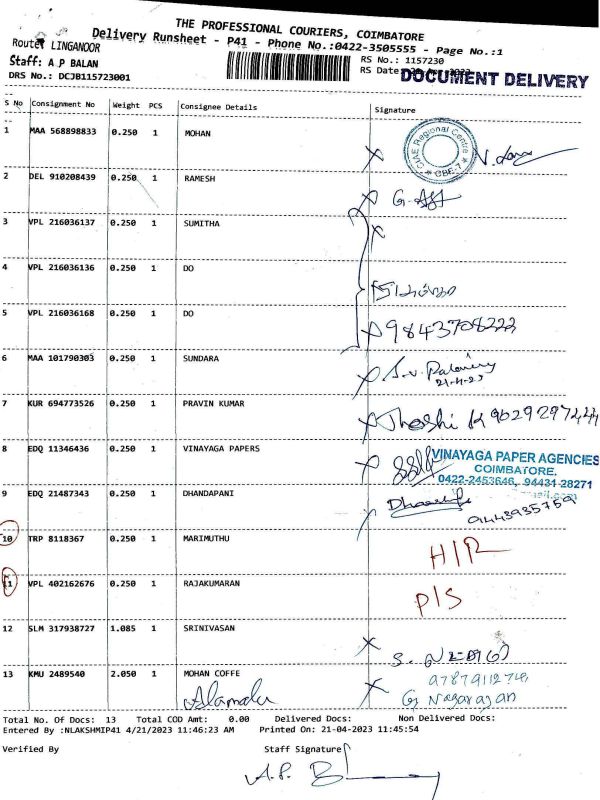 THE PROFESSIONAL COURIERS, COIMBATORE
Delivery Runsheet - P41 - Phone No.:0422-3505555 - Page No.:1
Route: LINGANOOR
Staff: A P BALAN
DRS No.: DCJB115723001
RS No.: 1157230
RS Date:
DOCUMENT DELIVERY
S No Consignment No Weight PCS Consignee Details Signature
1 MAA 568898833 0.250 1 MOHAN
CIAE Regional Centre
CBE-7
2 DEL 910208439 0.250 1 RAMESH
3 VPL 216036137 0.250 1 SUMITHA
4 VPL 216036136 0.250 1 DO
5 VPL 216036168 0.250 1 DO
9843708222
6 MAA 101790303 0.250 1 SUNDARA
21-4-23
7 KUR 694773526 0.250 1 PRAVIN KUMAR
Jhoshi K
8 EDQ 11346436 0.250 1 VINAYAGA PAPERS
VINAYAGA PAPER AGENCIES
COIMBATORE.
0422-2453646, 94431 28271
9 EDQ 21487343 0.250 1 DHANDAPANI
9443935759
10 TRP 8118367 0.250 1 MARIMUTHU
H/R
11 VPL 402162676 0.250 1 RAJAKUMARAN
P/S
12 SLM 317938727 1.085 1 SRINIVASAN
13 KMU 2489540 2.050 1 MOHAN COFFE
Alamelu
G Nagarajan
Total No. Of Docs: 13 Total COD Amt: 0.00 Delivered Docs: Non Delivered Docs:
Entered By :NLAKSHMIP41 4/21/2023 11:46:23 AM Printed On: 21-04-2023 11:45:54
Verified By Staff Signature
A.P. B